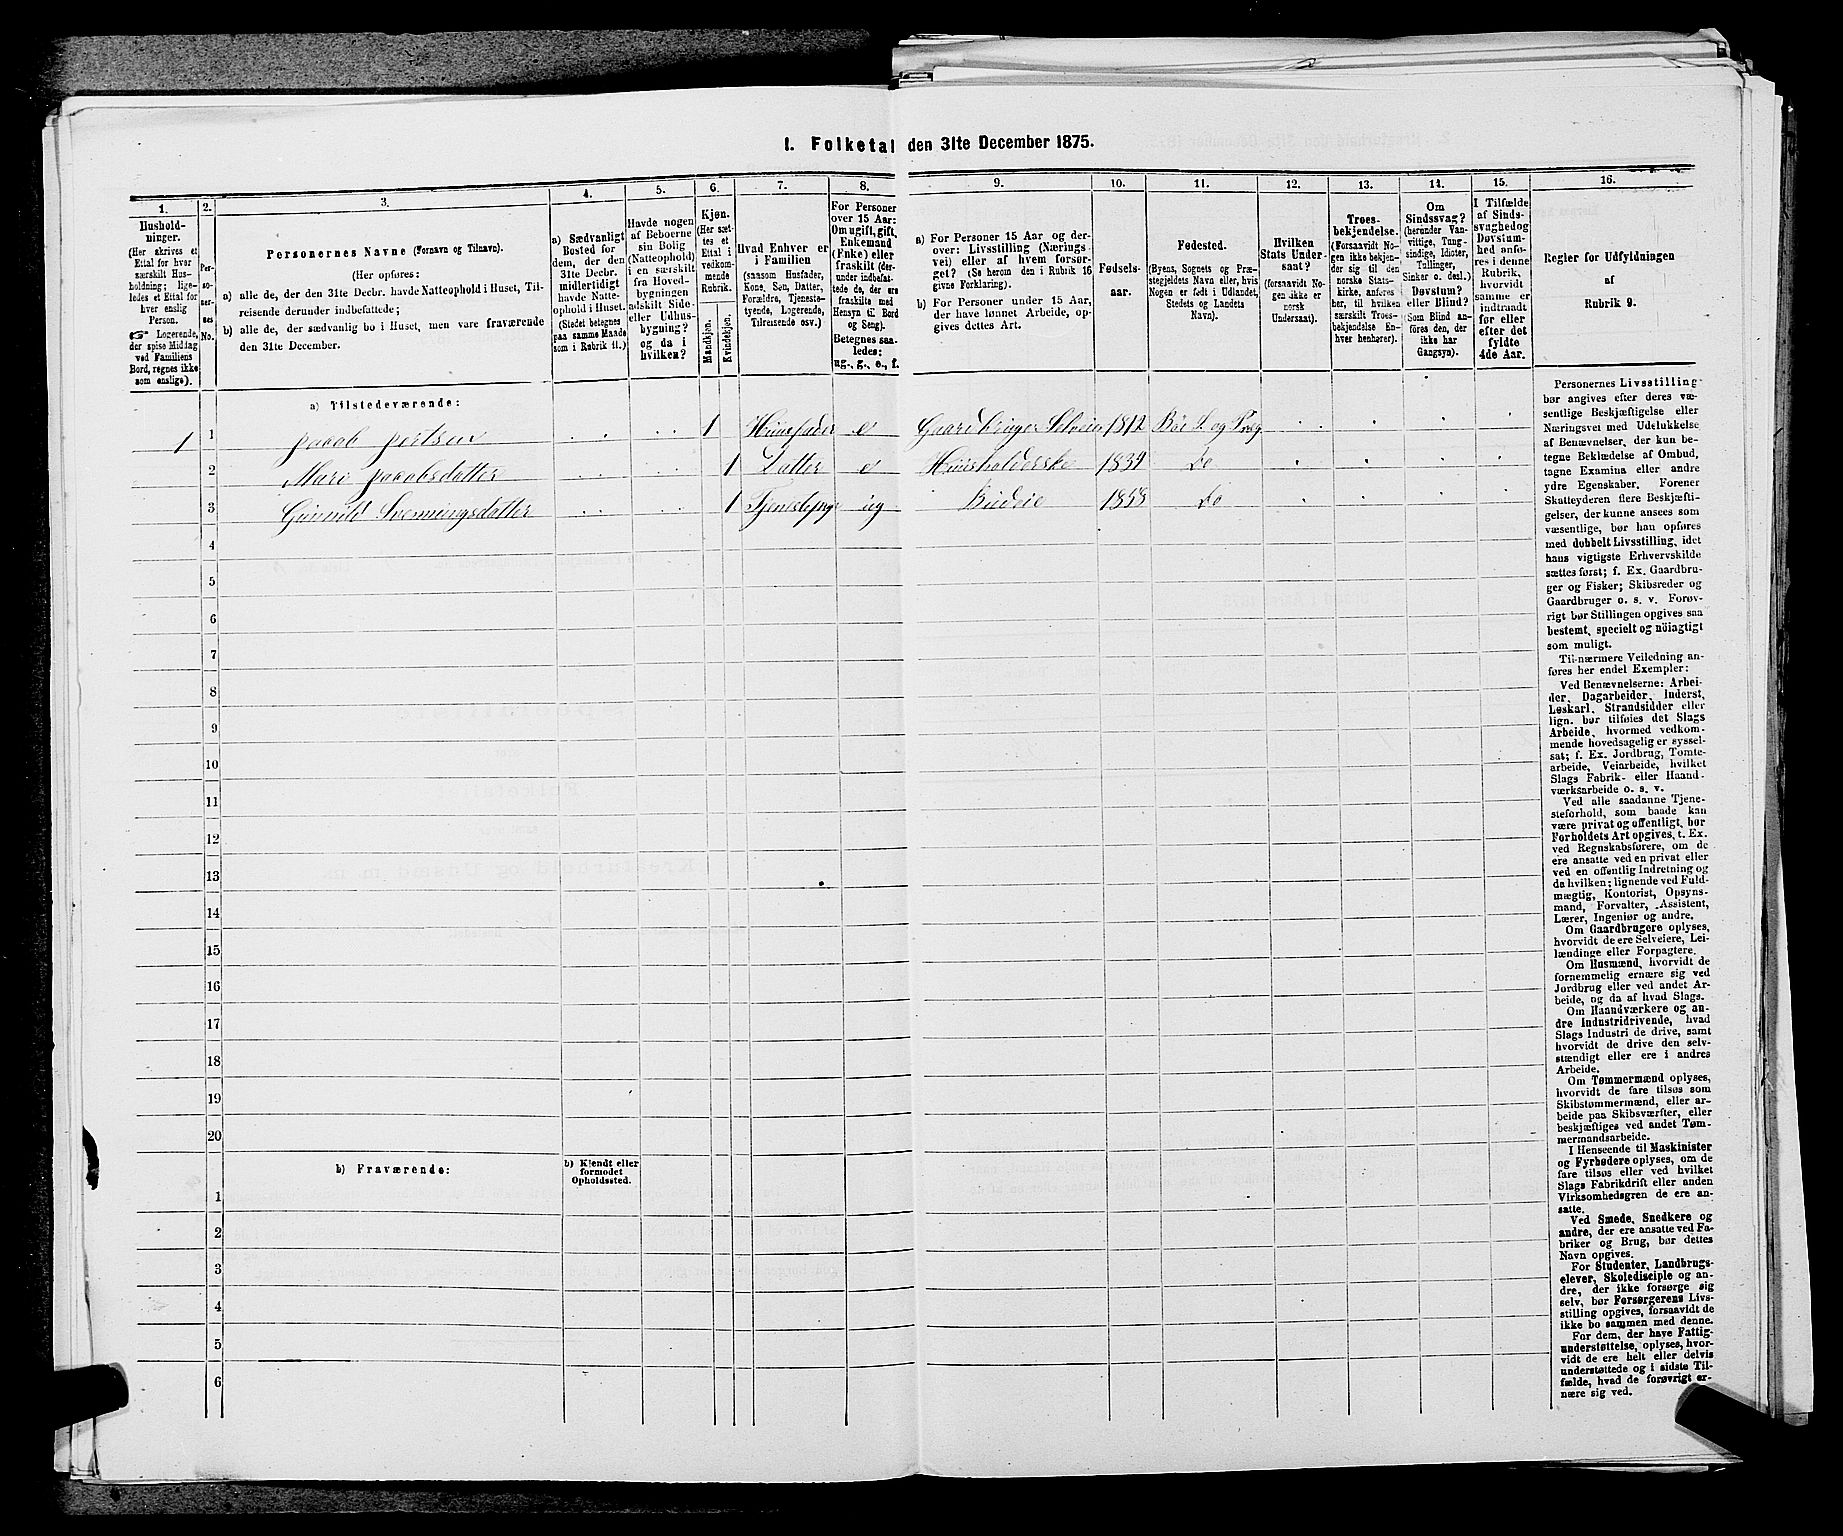 I. Folketal den 31te December 1875.
1. 2. 3. 4. 5. 6. 7. 8. 9. 10. 11. 12. 13. 14. 15. 16.
Hushold-
ninger.
(Her skrives et
Ettal for hver
særskilt Hus-
holdning; lige-
ledes et Ettal for
hver enslig
Person.
☞ Logerende,
der spise Middag
ved Familiens
Bord, regnes ikke
som enslige).
Per-
soner-
nes
No.
Personernes Navne (Fornavn og Tilnavn).
(Her opføres:
a) alle de, der den 31te Decbr. havde Natteophold i Huset, Til-
reisende derunder indbefattede;
b) alle de, der sædvanlig bo i Huset, men vare fraværende
den 31te December.
a) Sædvanligt
Bosted for
dem, der den
31te Decbr.
midlertidigt
havde Natte-
ophold i Huset.
(Stedet betegnes
paa samme Maade
som i Rubrik 11.)
Havde nogen
af Beboerne
sin Bolig
(Natteophold)
i en særskilt
fra Hoved-
bygningen
adskilt Side-
eller Udhus-
bygning?
og da i
hvilken?
Kjøn.
(Her sæt-
tes et
Ettal i
vedkom-
mende
Rubrik.
Mandkjøn.
Kvindekjøn.
Hvad Enhver er
i Familien
(saasom Husfader,
Kone, Søn, Datter,
Forældre, Tjeneste-
tyende, Logerende,
Tilreisende osv.)
For Personer
over 15 Aar:
Om ugift, gift,
Enkemand
(Enke) eller
fraskilt (der-
under indbefat-
tede de, der ere
fraskilte med
Hensyn til Bord
og Seng).
Betegnes saa-
ledes:
ug., g., e., f.
a) For Personer 15 Aar og der-
over: Livsstilling (Nærings-
vei) eller af hvem forsør-
get? (Se herom den i Rubrik 16
givne Forklaring).
b) For Personer under 15 Aar,
der have lønnet Arbeide, op-
gives dettes Art.
Fødsels-
aar.
Fødested.
(Byens, Sognets og Præ-
stegjeldets Navn eller, hvis
Nogen er født i Udlandet,
Stedets og Landets
Navn).
Hvilken
Stats Under-
saat?
(forsaavidt No-
gen ikke er
norsk
Undersaat).
Troes-
bekjendelse.
(Forsaavidt No-
gen ikke bekjen-
der sig til den
norske Stats-
kirke, anføres
her, til hvilken
særskilt Troes-
bekjendelse En-
hver henhører).
Om
Sindssvag?
(herunder Van-
vittige, Tung-
sindige, Idioter,
Tullinger,
Sinker o. desl.)
Døvstum?
eller Blind?
(Som Blind an-
føres den, der
ikke har
Gangsyn).
I Tilfælde
af Sinds-
svaghed og
Døvstum-
hed anfø-
res i denne
Rubrik,
hvorvidt
samme er
indtraadt
før eller
efter det
fyldte
4de Aar.
Regler for Udfyldningen
af
Rubrik 9.
a) Tilstedeværende:
1 1 Jacob Jertsen 1 Huusfader e Gaardbruger Selveier 1812 Bøe S. og Præg
2 Mari Jacobsdatter 1 Datter e Huusholderske 1839 Do
3 Gunnild Svenningsdatter 1 Tjenestepige ug Budeie 1858 Do
4
5
6
7
8
9
10
11
12
13
14
15
16
17
18
19
20
b) Fraværende:
b) Kjendt eller
formodet
Opholdssted.
1
2
3
4
5
6
Personernes Livsstilling
bør angives efter deres væ-
sentlige Beskjæftigelse eller
Næringsvei med Udelukkelse
af Benævnelser, der kun be-
tegne Beklædelse af Ombud,
tagne Examina eller andre
ydre Egenskaber. Forener
Skatteyderen flere Beskjæfti-
gelser, der kunne ansees som
væsentlige, bør han opføres
med dobbelt Livsstilling, idet
hans vigtigste Erhvervskilde
sættes først; f. Ex. Gaardbru-
ger og Fisker; Skibsreder og
Gaardbruger o. s. v. Forøv-
rigt bør Stillingen opgives saa
bestemt, specielt og nöiagtigt
som muligt.
Til nærmere Veiledning an-
føres her endel Exempler:
Ved Benævnelserne: Arbei-
der, Dagarbeider, Inderst,
Løskarl, Strandsidder eller
lign. bør tilføies det Slags
Arbeide, hvormed vedkom-
mende hovedsagelig er syssel-
sat; f. Ex. Jordbrug, Tomte-
arbeide, Veiarbeide, hvilket
Slags Fabrik- eller Haand-
værksarbeide o. s. v.
Ved alle saadanne Tjene-
steforhold, som baade kan
være privat og offentligt, bør
Forholdets Art opgives, t. Ex.
ved Regnskabsførere, om de
ere ansatte ved en privat eller
ved en offentlig Indretning og
da hvilken; lignende ved Fuld-
mægtig, Kontorist, Opsyns-
mand, Forvalter, Assistent,
Lærer, Ingeniør og andre.
Om Gaardbrugere oplyses,
hvorvidt de ere Selveiere, Lei-
lændinge eller Forpagtere.
Om Husmænd, hvorvidt de
fornemmelig ernære sig ved
Jordbrug eller ved andet Ar-
beide, og da af hvad Slags.
Om Haandværkere og an-
dre Industridrivende, hvad
Slags Industri de drive, samt
hvorvidt de drive den selv-
stændigt eller ere i andres
Arbeide.
Om Tømmermænd oplyses,
hvorvidt de fare tilsøs som
Skibstømmermænd, eller ar-
beide paa Skibsværfter, eller
beskjæftiges ved andet Tøm-
mermandsarbeide.
I Henseende til Maskinister
og Fyrbødere oplyses, om de
fare tilsøs eller ved hvilket
Slags Fabrikdrift eller anden
Virksomhedsgren de ere an-
satte.
Ved Smede, Snedkere og
andre, der ere ansatte ved Fa-
briker og Brug, bør dettes
Navn opgives.
For Studenter, Landbrugs-
elever, Skoledisciple og an-
dre, der ikke forsørge sig
selv, bør Forsørgerens Livs-
stilling opgives, forsaavidt de
ikke bo sammen med denne.
For dem, der have Fattig-
understøttelse, oplyses, hvor-
vidt de ere helt eller delvis
understøttede og i sidste Til-
fælde, hvad de forøvrigt er-
nære sig ved.